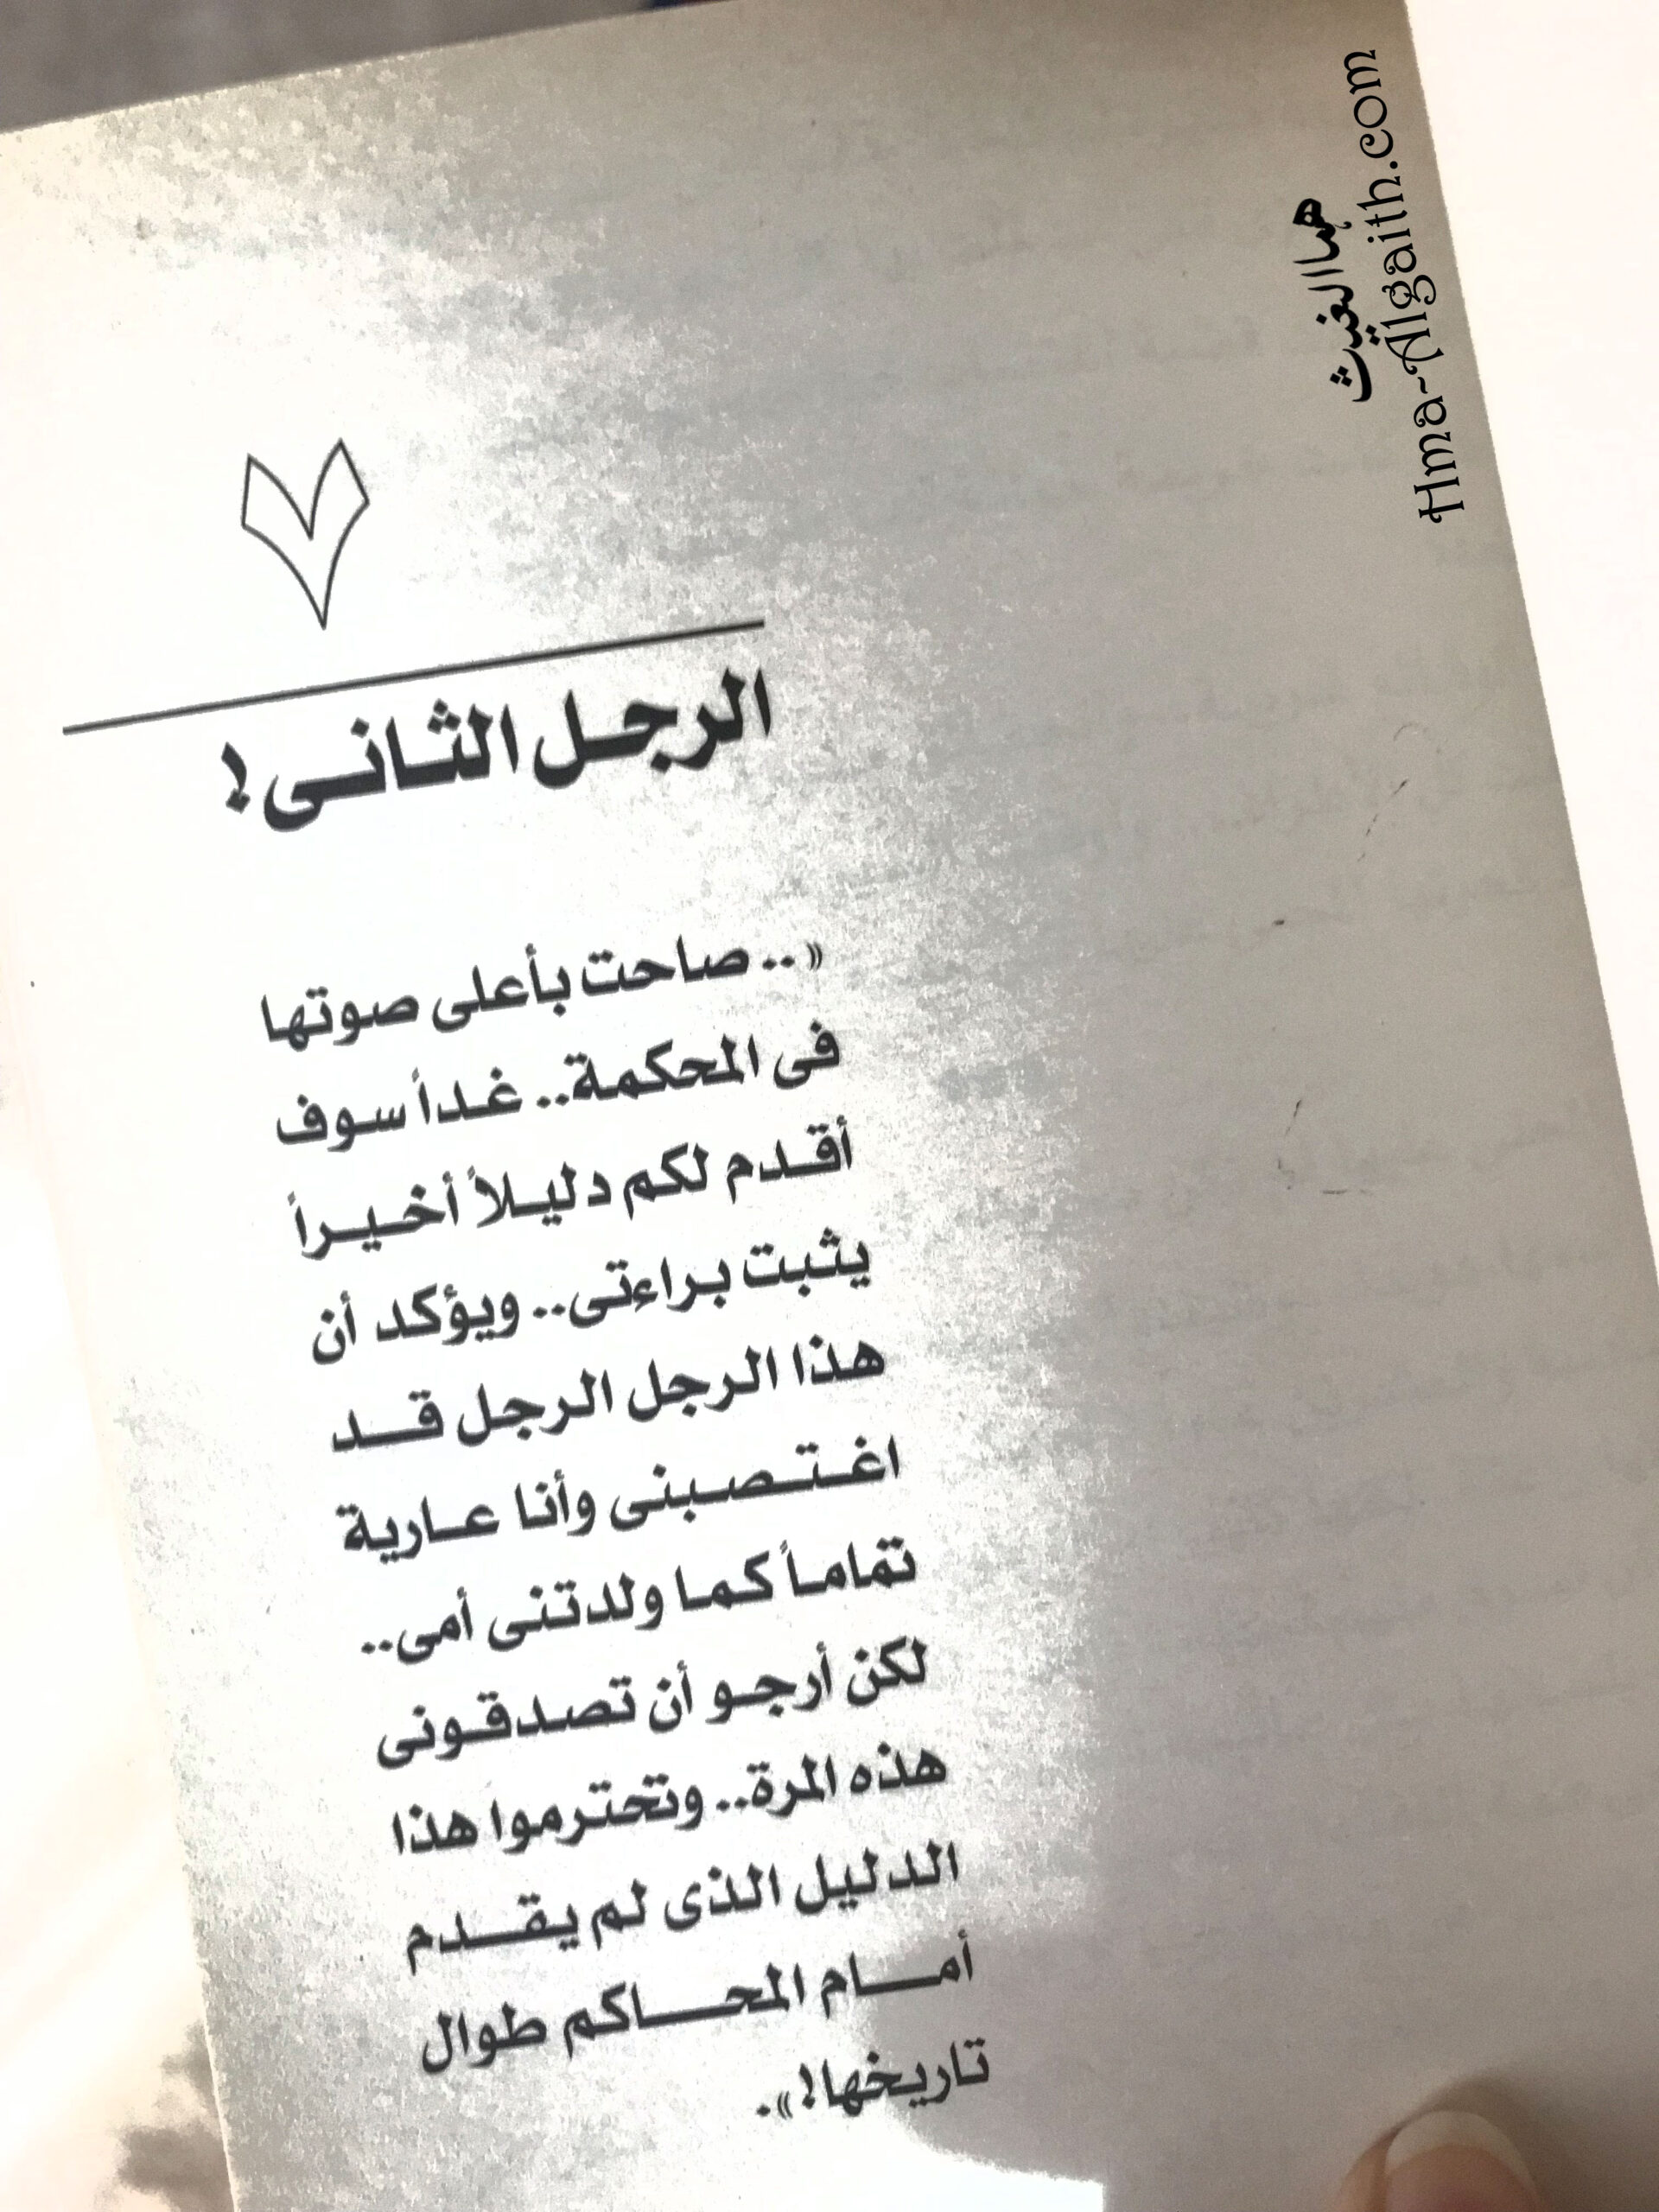 هيا الغيث
Hma-Algaith.com
٧
الرجل الثانى !
« .. صاحت بأعلى صوتها
فى المحكمة.. غداً سوف
أقدم لكم دليلاً أخيراً
يثبت براءتى.. ويؤكد أن
هذا الرجل الرجل قد
اغتصبنى وأنا عارية
تماماً كما ولدتنى أمى..
لكن أرجو أن تصدقونى
هذه المرة.. وتحترموا هذا
الدليل الذى لم يقدم
أمام المحاكم طوال
تاريخها!».